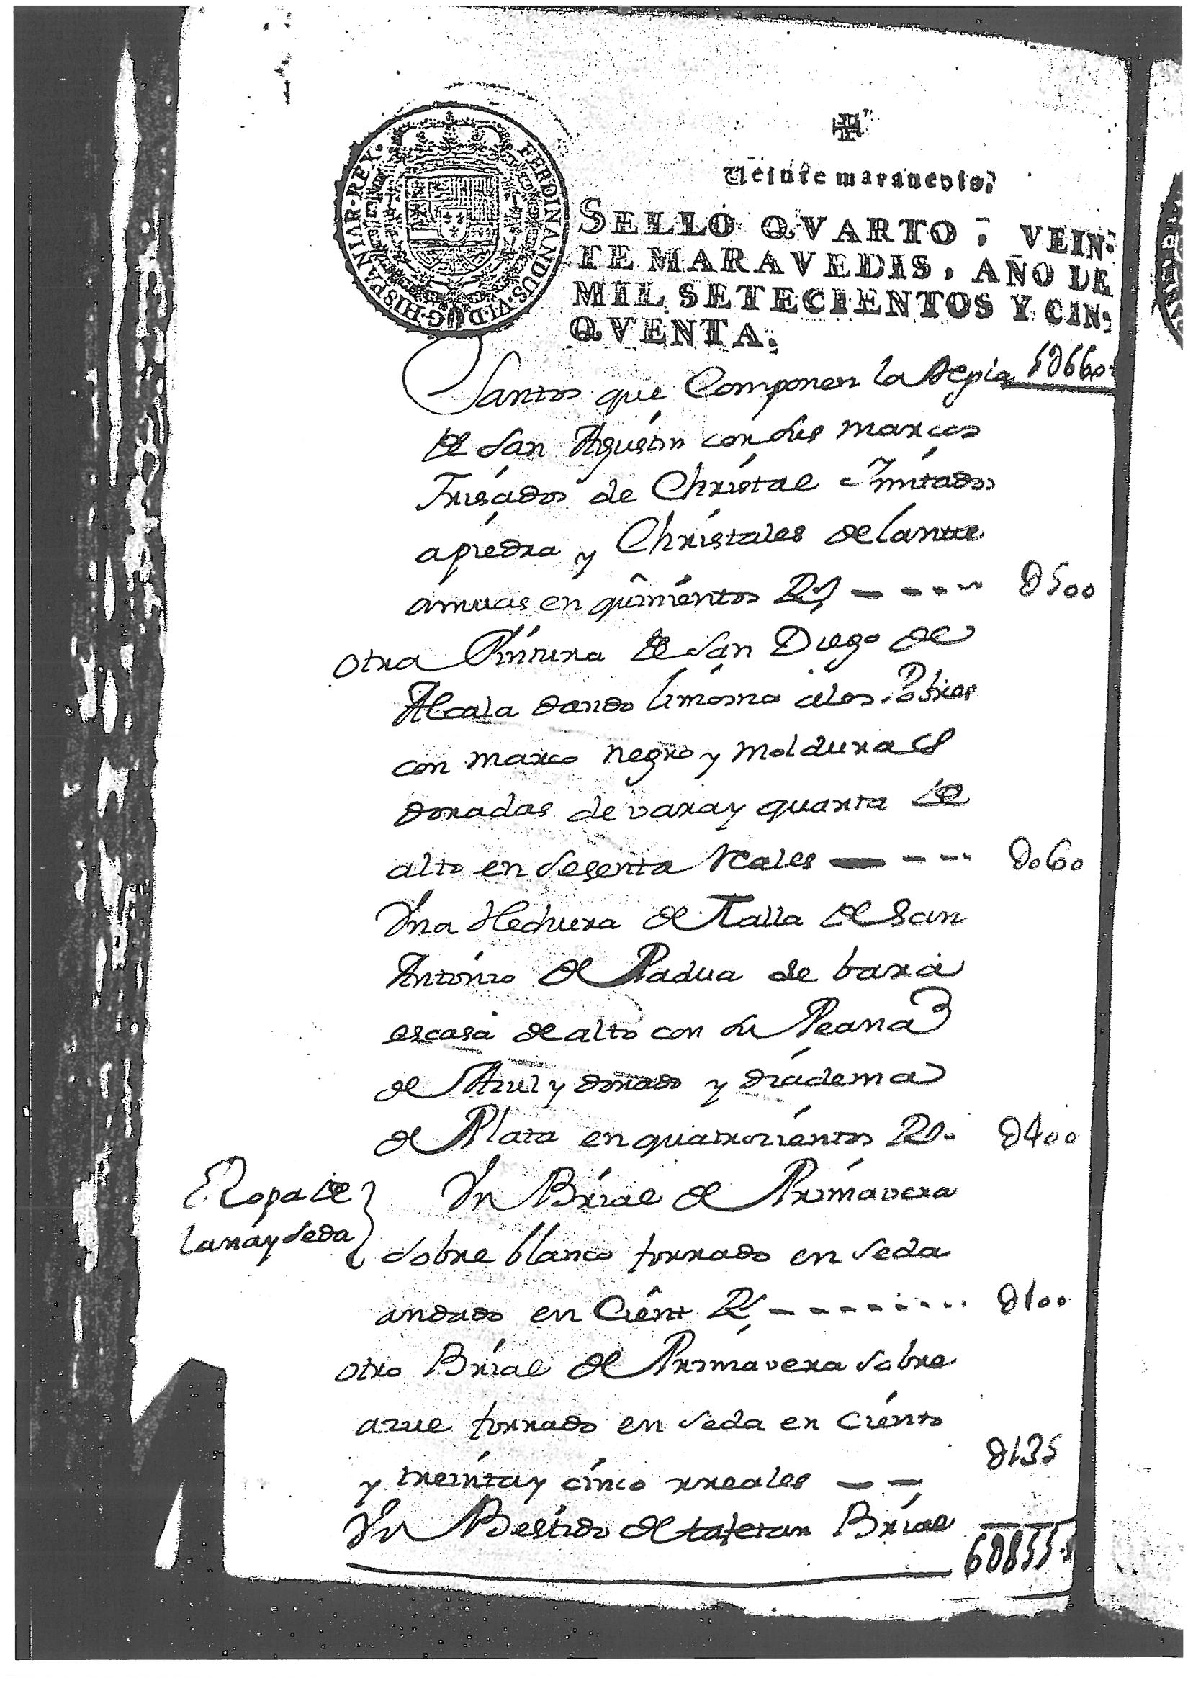 FERDINANDUS·VI·D·G·HISPANIAR·REX·
Veinte maravedis.
SELLO QVARTO, VEIN-
TE MARAVEDIS, AÑO DE
MIL SETECIENTOS Y CIN-
QVENTA.
Santos que Componen la Regla 5U660
de San Agustin con sus marcos
frisados de Christal Imitados
a piedra y Christales delante
en quinientos Rs U500
otra Pintura de San Diego de
Alcala dando limosna a los Pobres
con marco negro y molduras
doradas de vara y quarta de
alto en sesenta Reales U060
Una Hechura de Talla de San
Antonio de Padua de bara
escasa de alto con su Peana
de Azul y dorado y diadema
de Plata en quatrozientos Rs. U400
Ropa de
lana y seda
Un Brial de Primavera
sobre blanco forrado en seda
andado en Cient Rs U100
otro Brial de Primavera sobre
azul forrado en seda en Ciento
y treinta y cinco rreales U135
Un Bestido de tafetan Brial
6U855